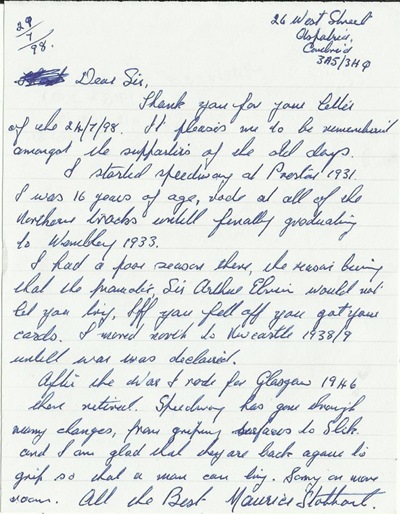 29/7/98.
26 West Street
Aspatria,
Cumbria
Dear Sir,
Thank you for your letter
of the 24/7/98. It pleases me to be remembered
amongst the supporters of the old days.
I started speedway at Preston 1931.
I was 16 years of age, rode at all of the
Northern tracks untill finally graduating
to Wembley 1933.
I had a poor season there, the reason being
that the promoter, Sir Arthur Elvin would not
let you lay, Iff you fell off you got your
cards. I moved north to Newcastle 1938/9
untill war was declaired.
After the war I rode for Glasgow 1946
then retired. Speedway has gone through
many changes, from griping surfaces to Slick.
and I am glad that they are back again to
grip so that a man can lay. Sorry no more
room. All the Best Maurice Stobbart.